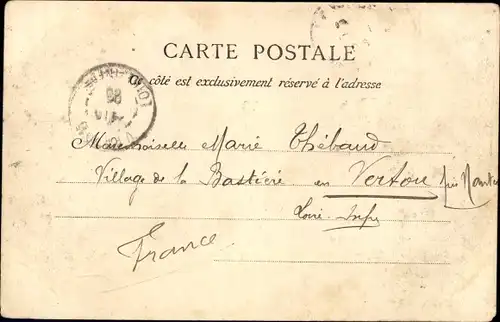 CARTE POSTALE
Ce côté est exclusivement réservé à l'adresse
Mademoiselle Marie Thébaud
Village de la Bastière en Vertou près Nantes
Loire-Infre
France